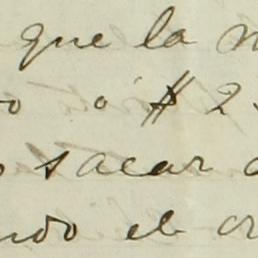 que la
o ó $ 2
sacar
ndo el cr